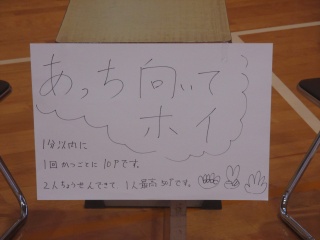 あっち向いて
ホイ
1分以内に
1回かつごとに10Pです。
2人ちょうせんできて、1人最高50Pです。